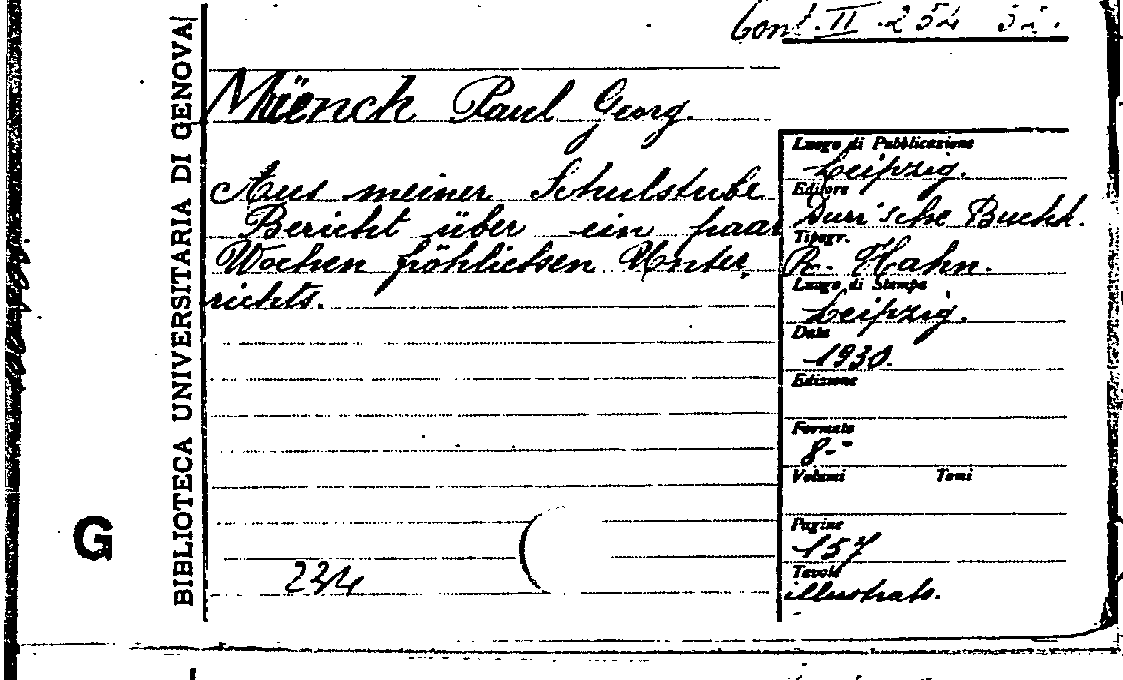 Conf. II 254 32.
BIBLIOTECA UNIVERSITARIA DI GENOVA
Münch Paul Georg.
Aus meiner Schulstube
Bericht über ein paar
Wochen fröhlichen Unter
richts.
Luogo di Pubblicazione
Leipzig.
Editore
Durr'sche Buchh.
Tipogr.
R. Hahn.
Luogo di Stampa
Leipzig.
Data
1930.
Edizione
Formato
8-°
Volumi Tomi
Pagine
157
Tavole
illustrat.
G